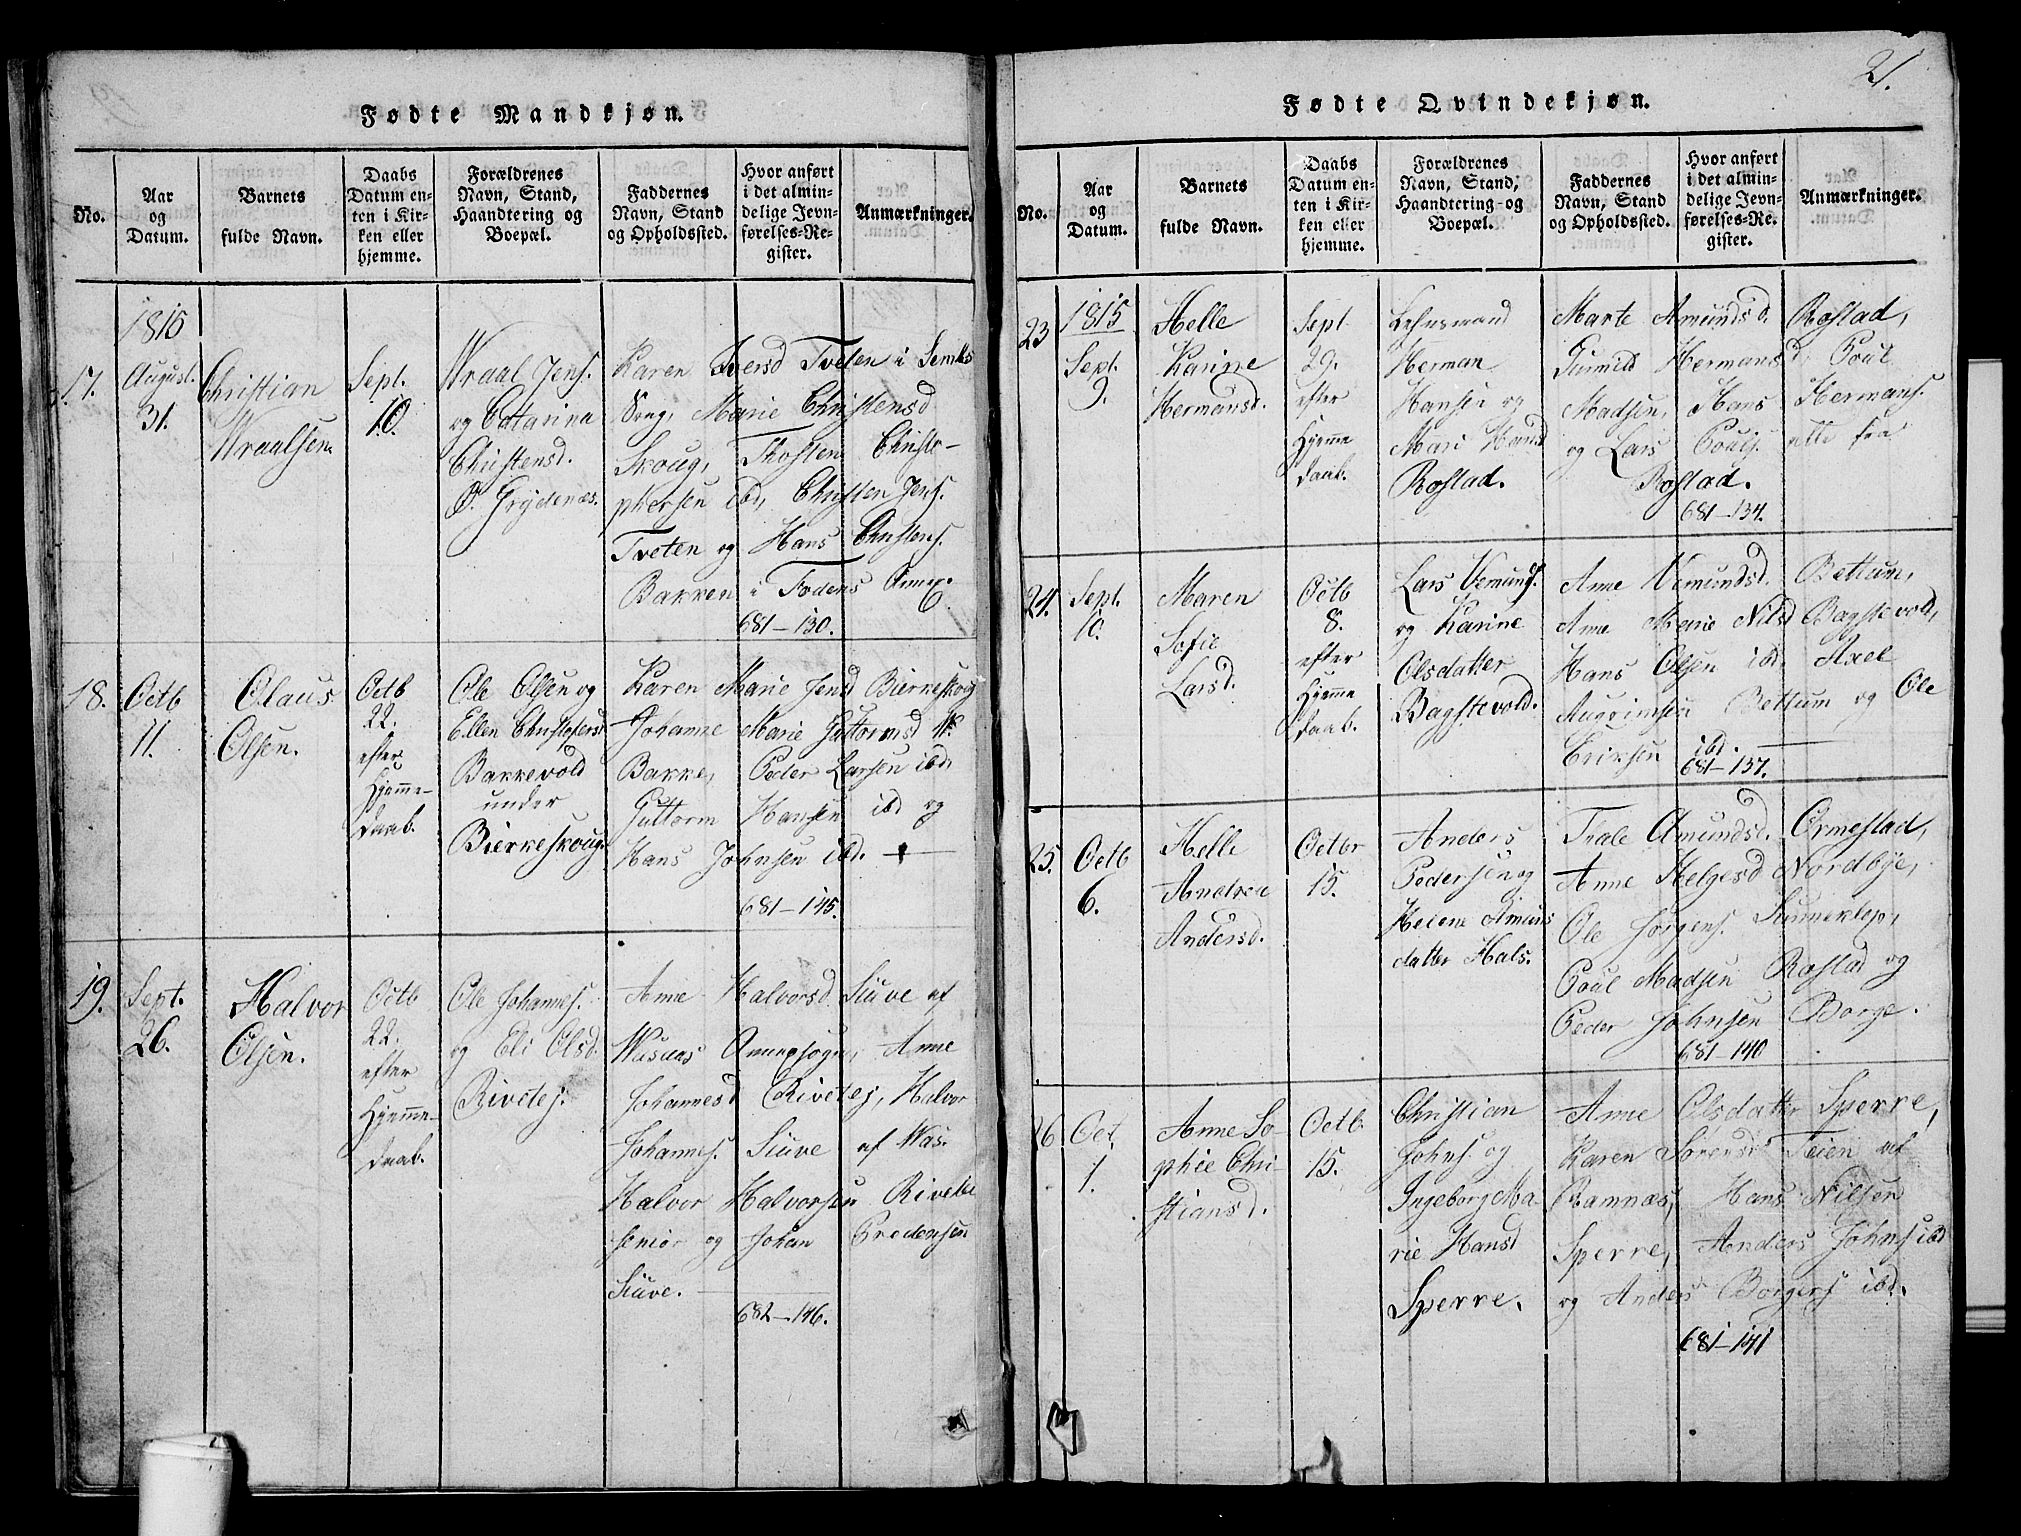 21.
Fødte Mandkjøn.
No.
Aar
og
Datum.
Barnets
fulde Navn.
Daabs
Datum en-
ten i Kir-
ken eller
hjemme.
Forældrenes
Navn, Stand,
Haandtering og
Boepæl.
Faddernes
Navn, Stand
og Opholdssted.
Hvor anført
i det almin-
delige Jevn-
førelses-Re-
gister.
Anmærkninger.
17.
1815
August.
31.
Christian
Wraalsen.
Sept.
10.
Wraal Jens.
og Catarina
Christensd.
Ø. Grydenæs.
Karen Iversd Tveten i Sembs
Sogn, Marie Christensd
Skoug, Thosten Christo-
phersen ibd, Christen Jens.
Tveten og Hans Christens.
Bakken i Fodens Annex.
681-130.
18.
Octb
11.
Olaus
Olsen.
Octb
22.
efter
Hjemme-
daab.
Ole Olsen og
Ellen Christofersd
Bakkevold
under
Bierkeskoug.
Karen Marie Jensd Bierkeskoug
Johanne Marie Guttormsd
Bakke, Peder Larsen ibd,
Guttorm Hansen ibd og
Hans Johnsen ibd.
681-145.
19.
Sept.
26.
Halvor
Olsen.
Octb
22.
efter
Hjemme-
daab.
Ole Johannes.
og Eli Olsd.
Rivetej.
Anne Halvorsd. Siuve af
Wasaas Annexsogn, Anne
Johannesd Rivetej, Halvor
Johannes. Siuve af Was.
Halvor Halvorsen Rivetei
senior og Johan Predensen
Siuve.
682-146.
Fødte Qvindekjøn.
No.
Aar
og
Datum.
Barnets
fulde Navn.
Daabs
Datum en-
ten i Kir-
ken eller
hjemme.
Forældrenes
Navn, Stand,
Haandtering og
Boepæl.
Faddernes
Navn, Stand
og Opholdssted.
Hvor anført
i det almin-
delige Jevn-
førelses-Re-
gister.
Anmærkninger.
23
1815
Sept.
9.
Helle
Karine
Hermansd.
Sept
29.
efter
Hjemme
daab.
Lehnsmand
Herman
Hansen og
Mari Hansd
Rostad.
Marte Amundsd. Rostad,
Gunnild Hermansd, Poul
Madsen, Hans Hermans.
og Lars Pouls. alle fra
Rostad.
681-134.
24.
Sept.
10.
Maren
Sofie
Larsd.
Octb
8.
efter
Hjemme
daab.
Lars Vemunds.
og Karine
Olsdatter
Bagstevold.
Anne Vemundsd. Bettum,
Anne Marie Nilsd Bagstevold,
Hans Olsen ibd. Axel
Augrimsen Bettum og Ole
Eriksen ibd.
681-137.
25.
Octb
6.
Helle
Andrea
Andersd.
Octbr
15.
Anders
Pedersen og
Helene Amuns
datter Hals.
Trale Amundsd. Ormestad,
Anne Helgesd Nordbye,
Ole Jørgens.
Poul Madsen Rostad og
Peder Johnsen Borge.
681-140
26
Oct.
1.
Anne So-
phie Chri-
stiansd.
Octb.
15.
Christian
Johns og
Ingeborg Ma-
rie Hansd
Sperre.
Anne Olsdatter Sperre,
Karen Sørensd Teien af
Ramnæs, Hans Nilsen
Sperre, Anders Johns ibd
og Anders Borgers ibd.
681-141